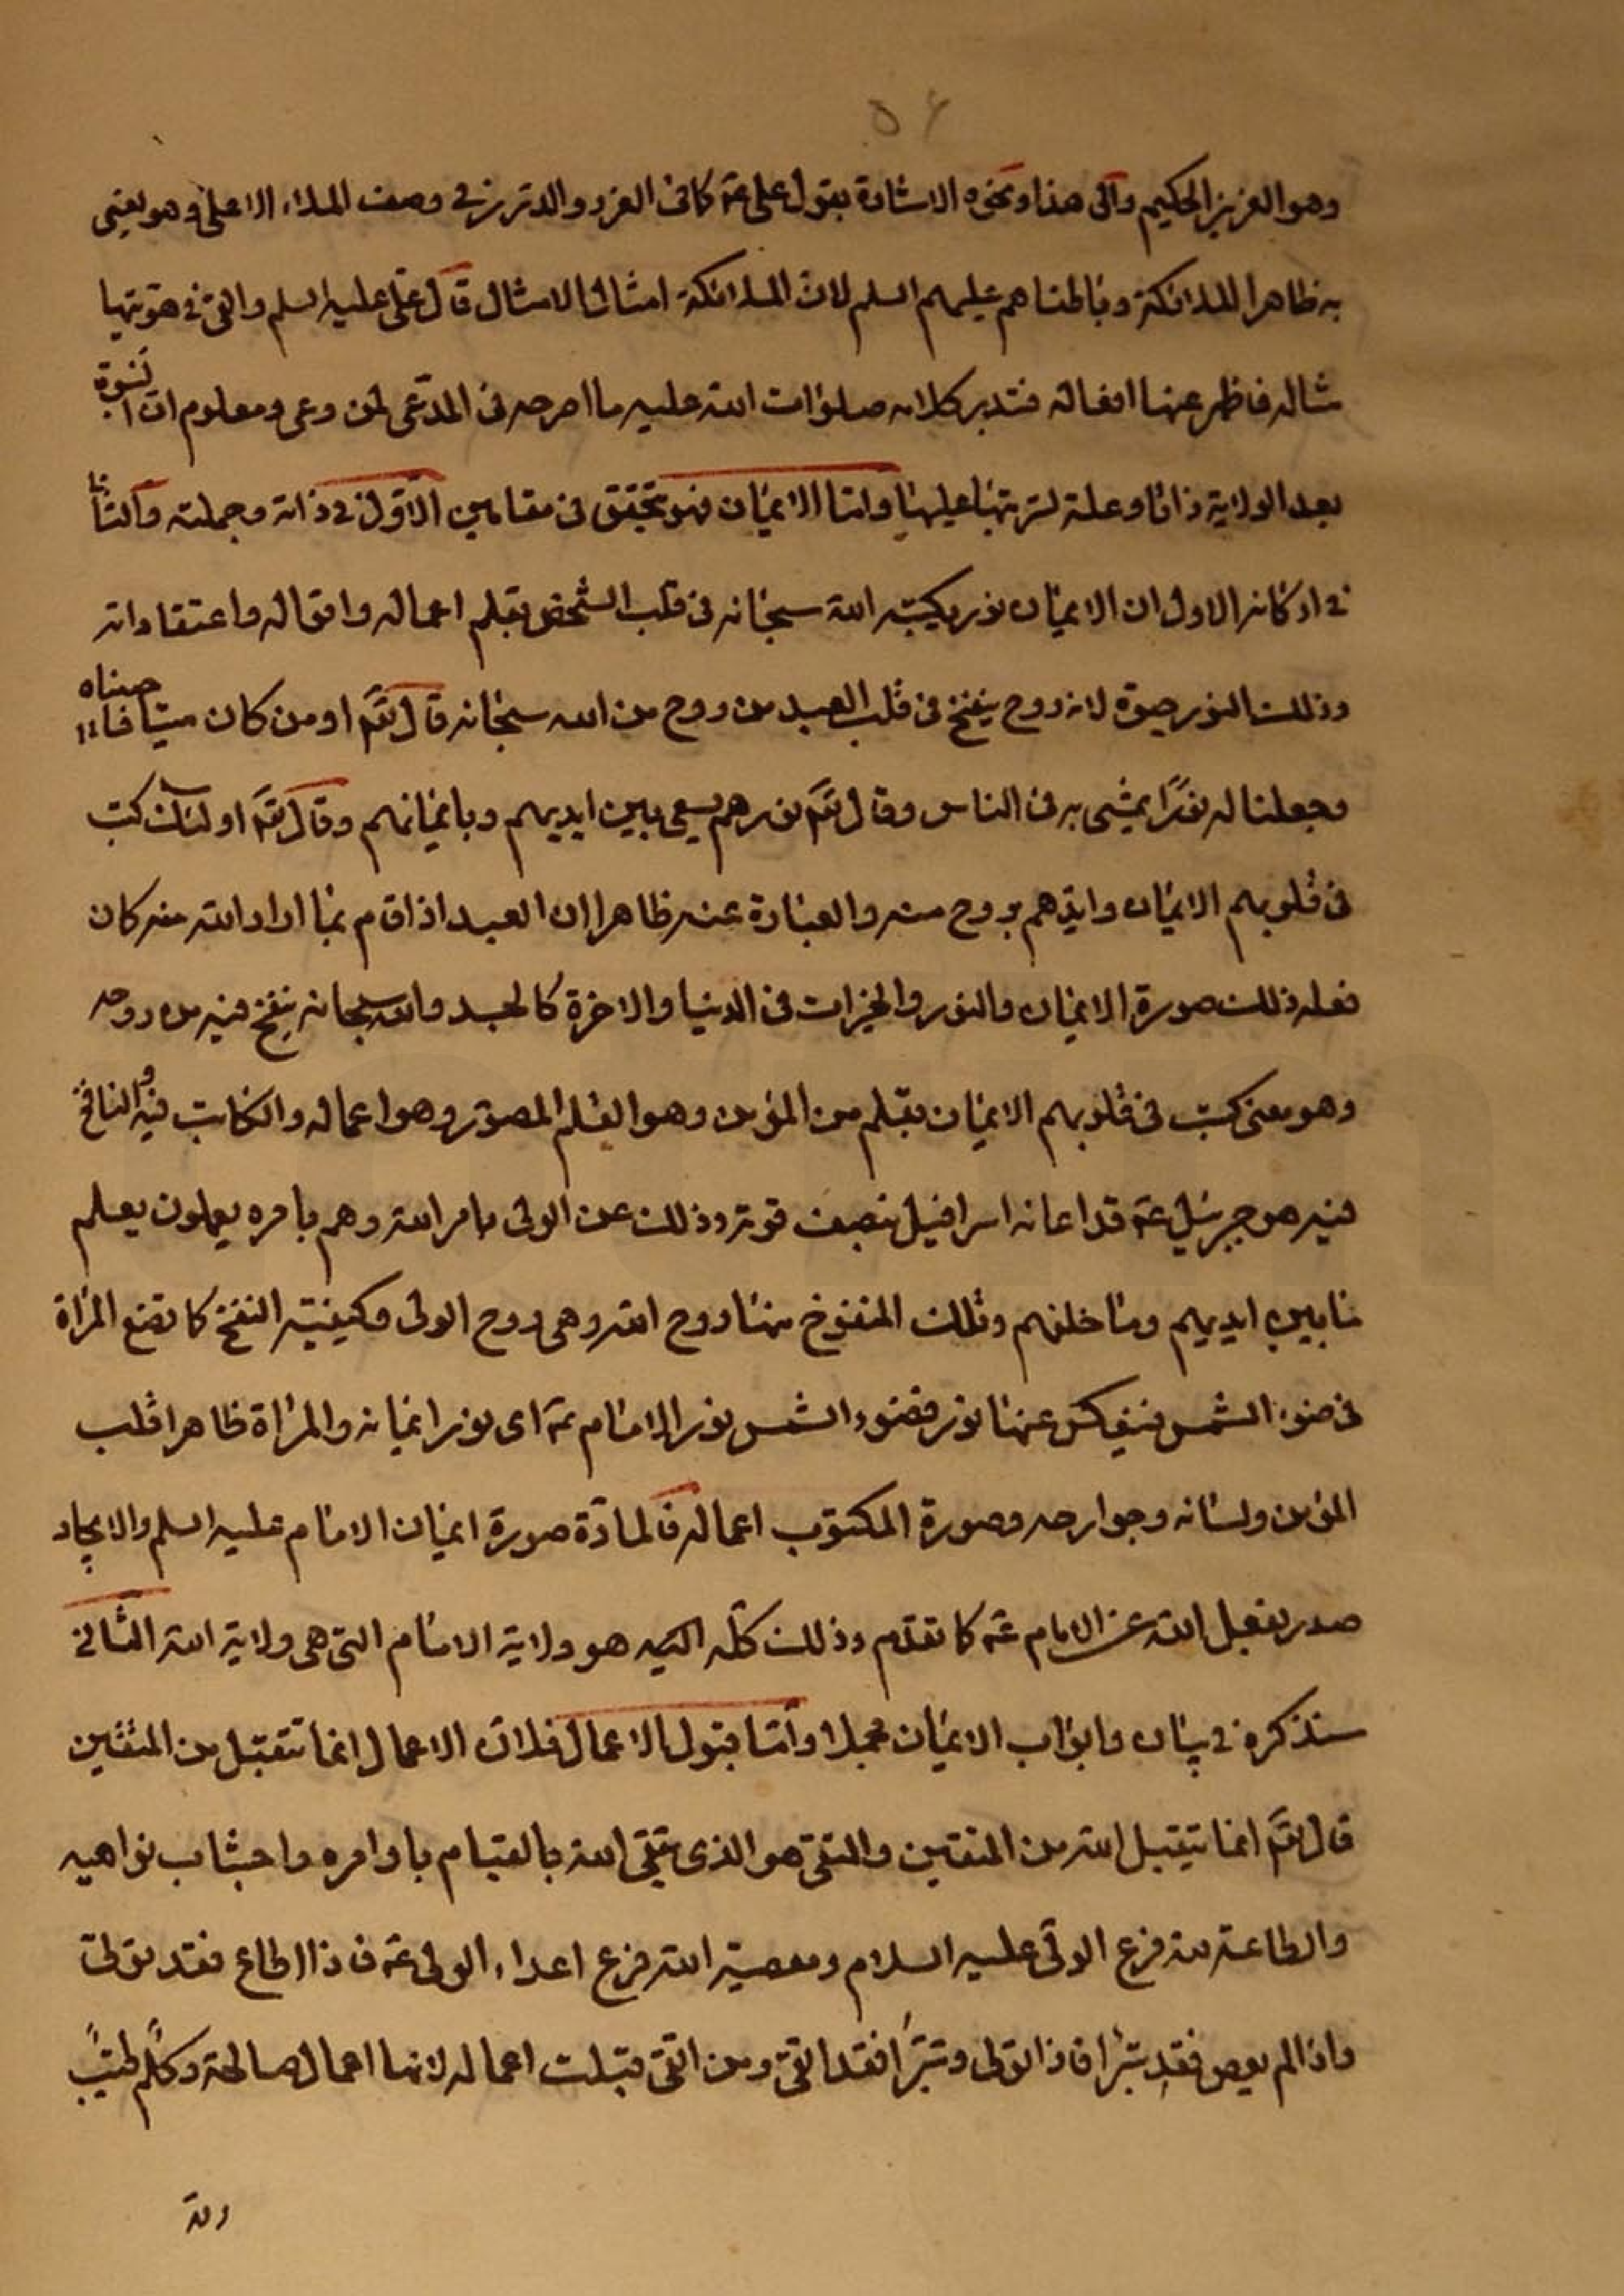 ٥٤
وهو العزيز الحكيم والى هذا ونحوه الاشارة بقول على عم كما فى الغرر والدرر فى وصف الملاء الاعلى وهو يعنى
به ظاهرا الملائكة وباطنا هم عليهم السلم لان الملائكة امثال الامثال قال على عليه السلم والقى فى هويتها
مثاله فاظهر عنها افعاله فتدبر كلامه صلوات الله عليه ما اصرحه فى المدعى لمن وعى ومعلوم ان النبوة
بعد الولاية ذاتا وعلة لترتبها عليها واما الايمان فهو يتحقق فى مقامين الاول فى ذاته وجملته والثانى
فى اركانه الاول ان الايمان نور يكتبه الله سبحانه فى قلب الشخص بقلم اعماله واقواله واعتقاداته
وذلك النور حيوة لانه روح ينفخ فى قلب العبد من روح من الله سبحانه قال تعم اومن كان ميتا فاحييناه
وجعلنا له نورا يمشى به فى الناس وقال تعم نورهم يسعى بين ايديهم وبايمانهم وقال تعم اولئك كتب
فى قلوبهم الايمان وايدهم بروح منه والعبارة عنه ظاهرا ان العبد اذا قام بما اراد الله منه كان
فعله ذلك صورة الايمان والنور والخيرات فى الدنيا والاخرة كالجسد والله سبحانه ينفخ فيه من روحه
وهو معنى كتب فى قلوبهم الايمان بقلم من المؤمن وهو القلم المصور وهو اعماله والكاتب فيه والنافخ
فيه هو جبرئيل عم قد اعانه اسرافيل بنصف قوته وذلك عن الولى بامر الله وهم بامره يعملون يعلم
ما بين ايديهم وما خلفهم وتلك المنفوخ منها روح الله وهى روح الولى وكيفيته النفخ كما تضع المراة
فى ضوء الشمس فينعكس عنها نور فضوء الشمس نور الامام عم اى نور ايمانه والمراة ظاهرا قلب
المؤمن ولسانه وجوارحه وصورة المكتوب اعماله فالمادة صورة ايمان الامام عليه السلم والايجاد
صدر بفعل الله عن الامام عم كما تقدم وذلك كله اليه هو ولاية الامام التى هى ولاية الله الثانى
سنذكره فى بيان وابواب الايمان مجملا واما قبول الاعمال فلان الاعمال انما تتقبل من المتقين
قال تعم انما يتقبل الله من المتقين والتقى هو الذى يتقى الله بالقيام باوامره واجتناب نواهيه
والطاعة لله فرع الولى عليه السلام ومعصية الله فرع اعداء الولى عم فاذا اطاع فقد تولى
واذا لم يعص فقد تبرا فاذا تولى وتبرا فقد اتقى ومن اتقى قبلت اعماله لانها اعمال صالحة وكلم طيب